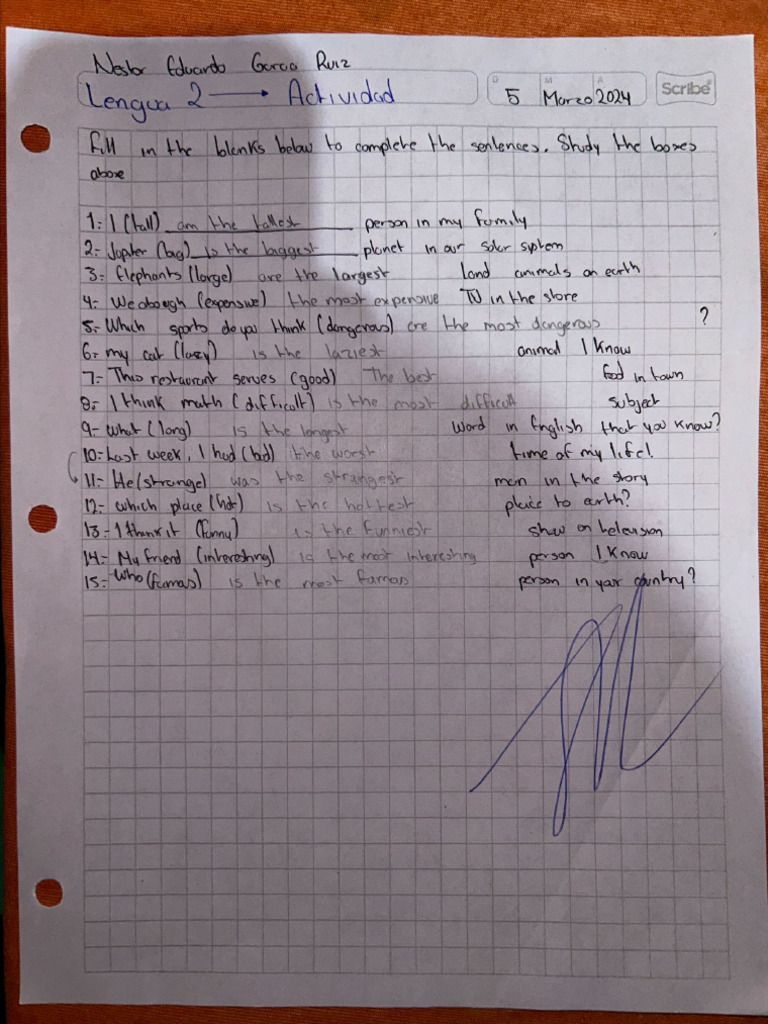 Nestor Eduardo Garcia Ruiz
Lengua 2 → Actividad
D M A
5 Marzo 2024
Scribe
Fill in the blanks below to complete the sentences. Study the boxes
above
1.- I (tall) am the tallest person in my family
2.- Jupiter (big) is the biggest planet in our solar system
3.- Elephants (large) are the largest land animals on earth
4.- We abough (expensive) the most expensive TV in the store
5.- Which sports do you think (dangerous) are the most dangerous ?
6.- my cat (lazy) is the laziest animal I know
7.- This restaurant serves (good) The best food in town
8.- I think math (difficult) is the most difficult subject
9.- What (long) is the longest word in English that you know?
10.- Last week, I had (bad) the worst time of my life!
11.- He (strange) was the strangest man in the story
12.- which place (hot) is the hottest place to earth?
13.- I think it (funny) is the funniest show on television
14.- My friend (interesting) is the most interesting person I know
15.- Who (famas) is the most famas person in your country?